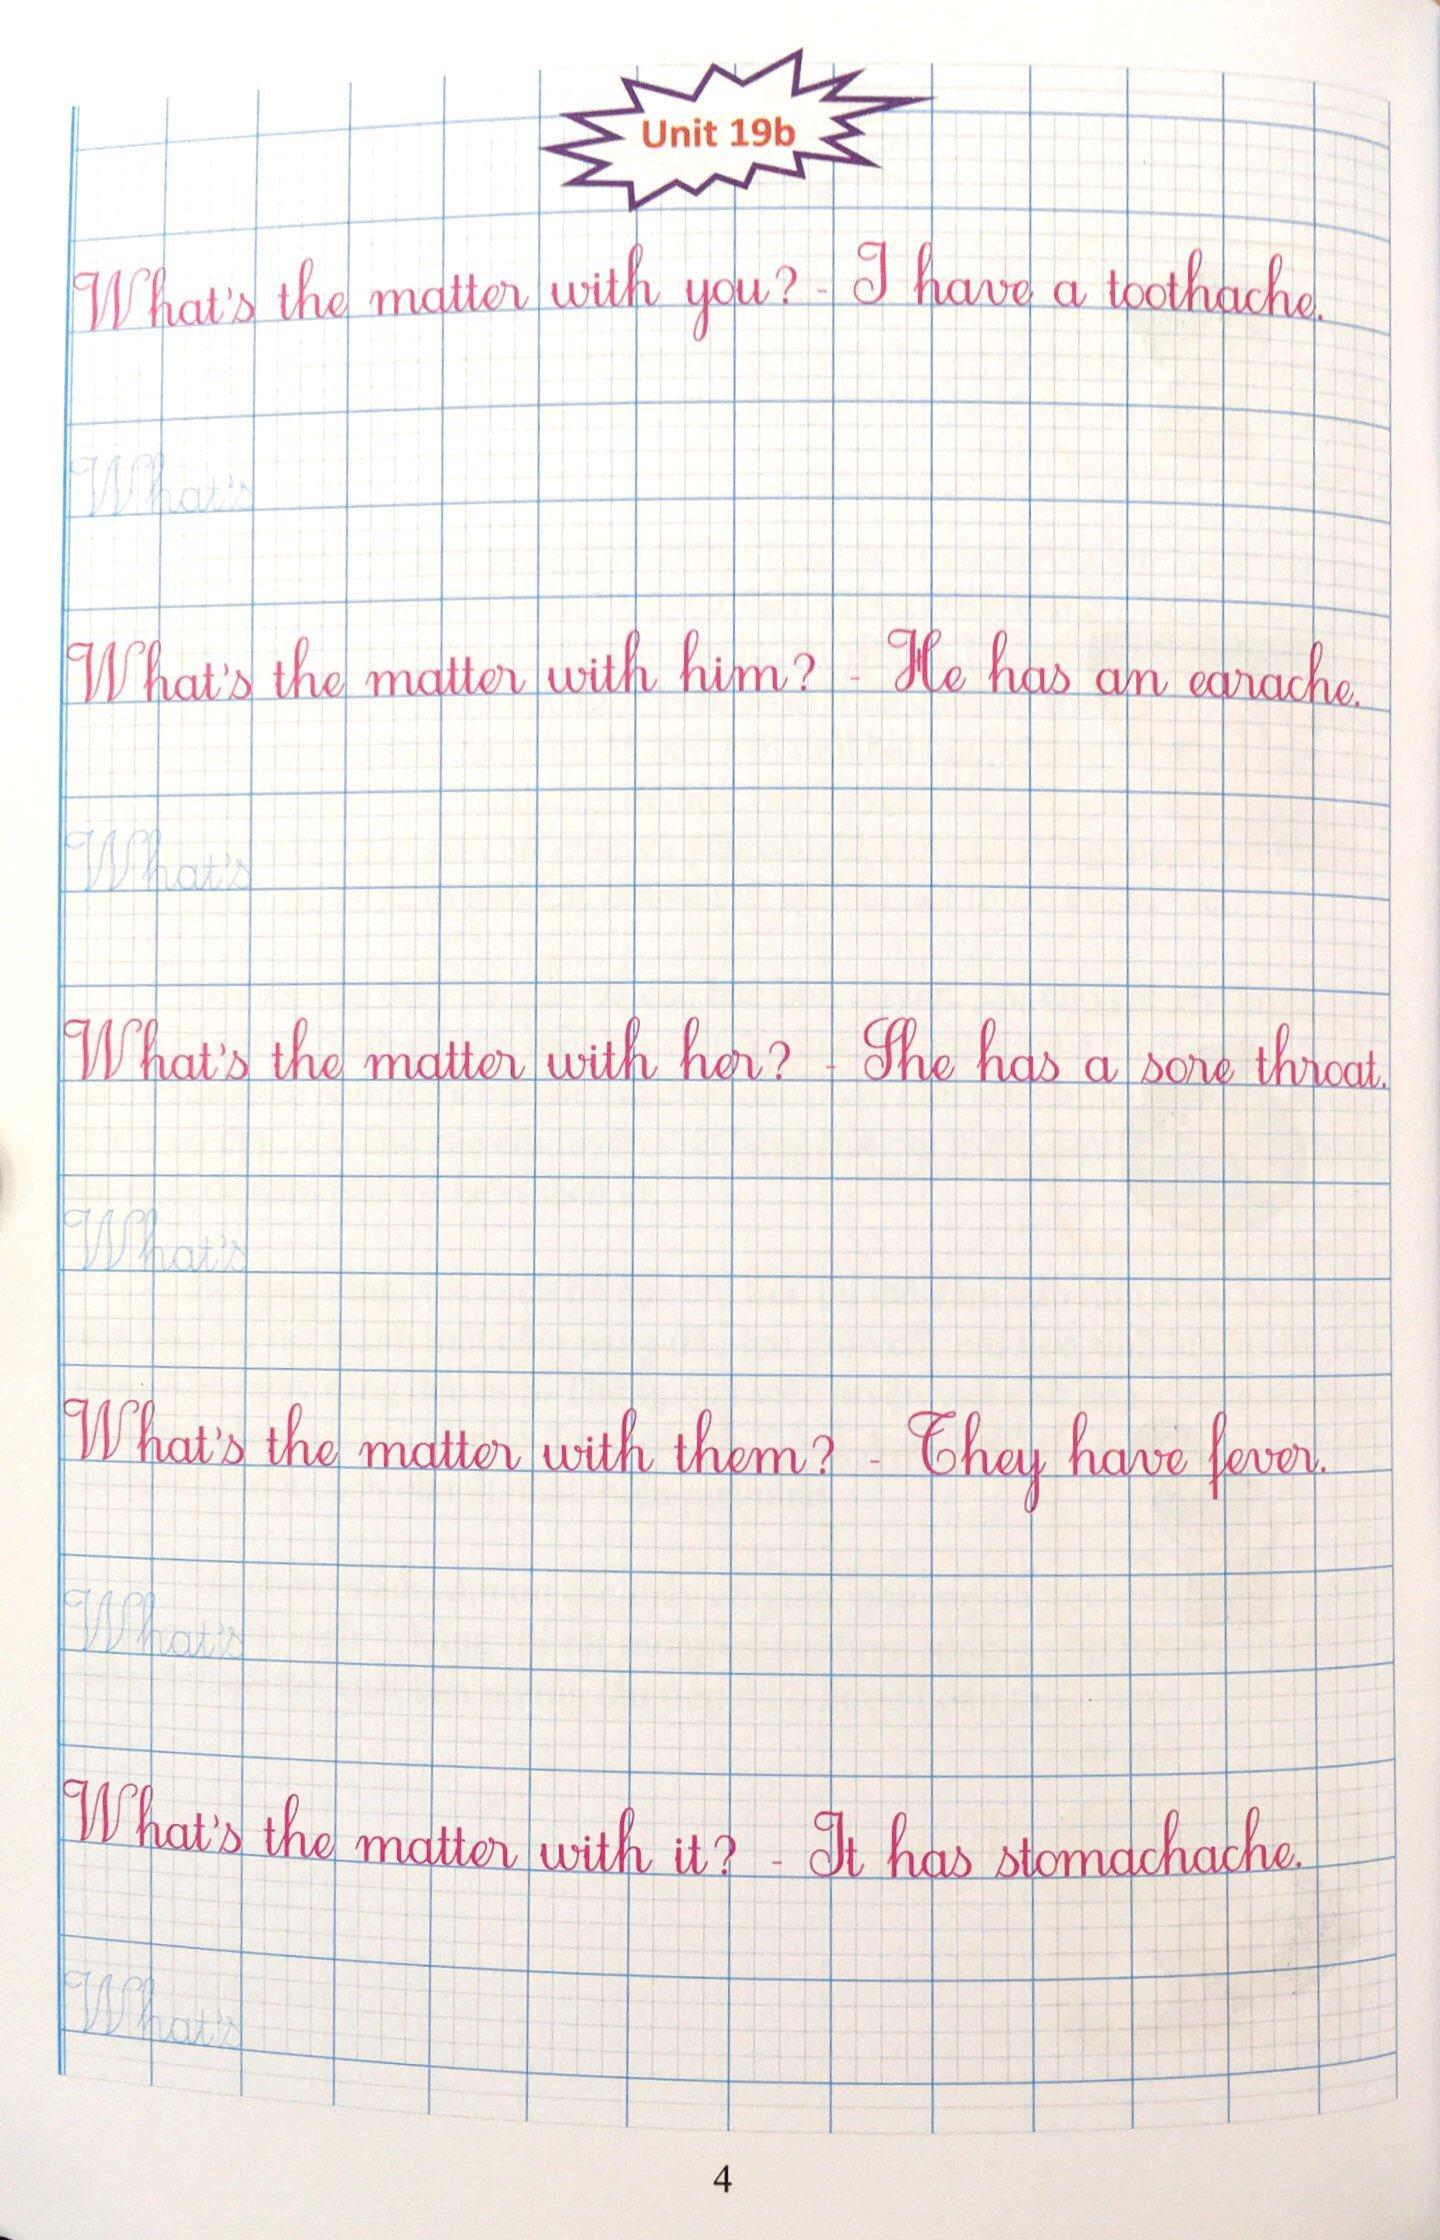 Unit 19b
What's the matter with you? - I have a toothache.
What's
What's the matter with him? - He has an earache.
What's
What's the matter with her? - She has a sore throat.
What's
What's the matter with them? - They have fever.
What's
What's the matter with it? - It has stomachache.
What's
4